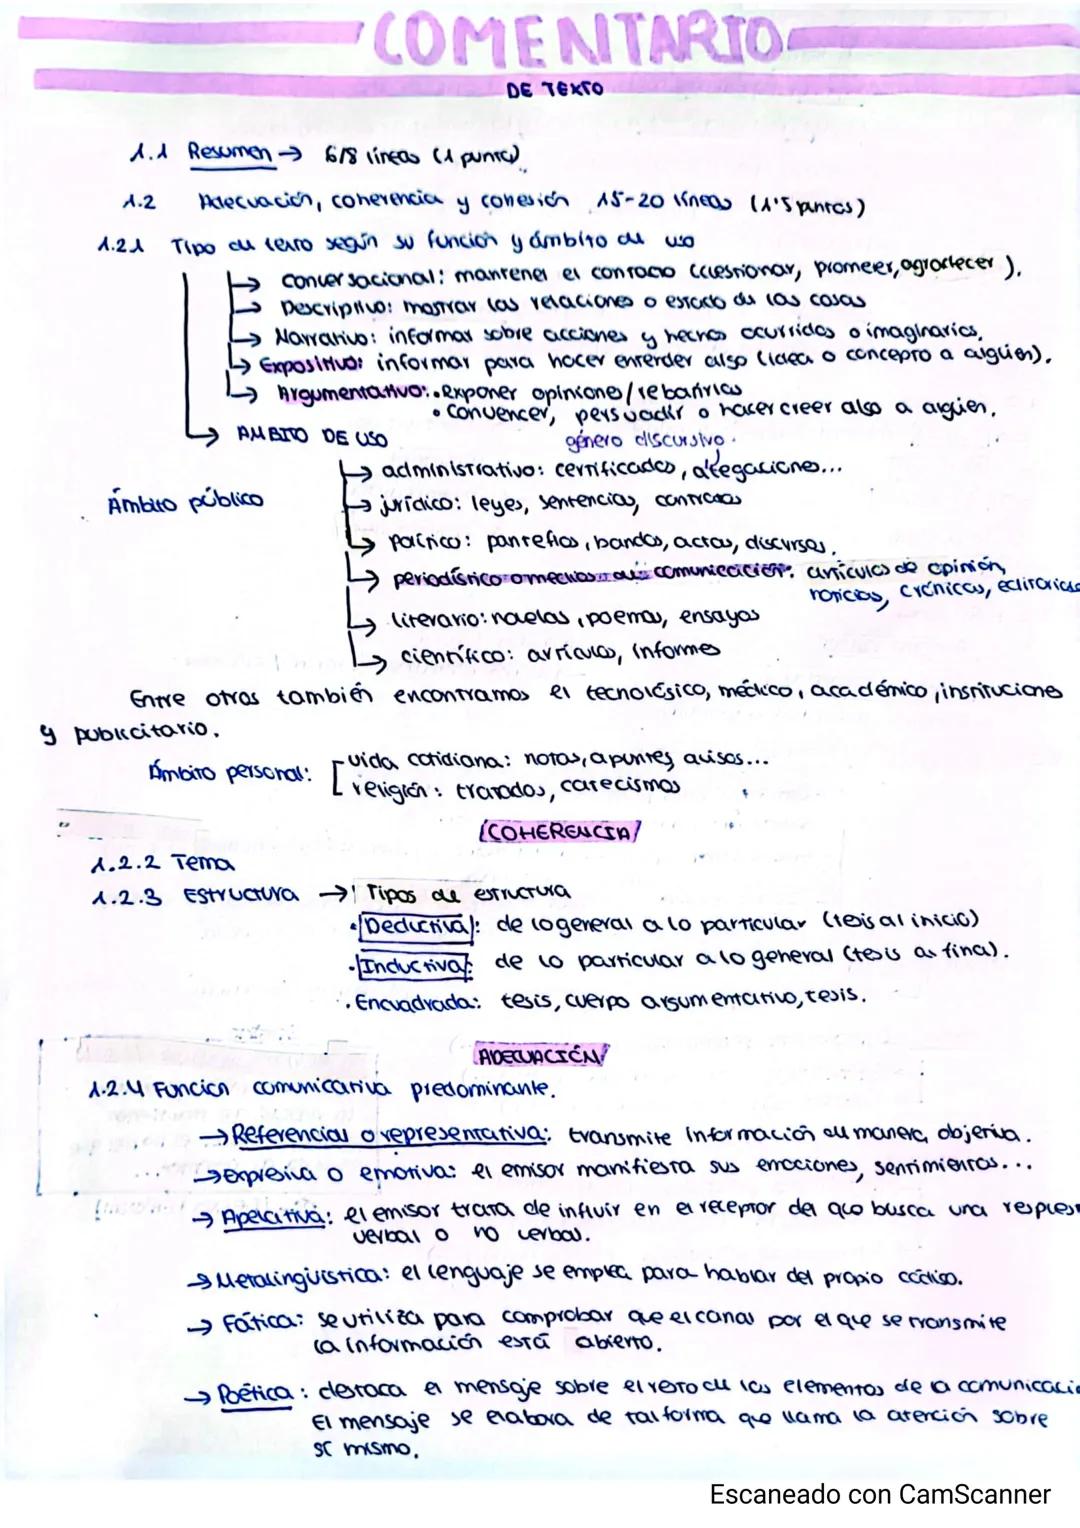 COMENTARIO
DE TEXTO
1.1 Resumen → 6/8 líneas (1 punto)
1.2 Adecuación, coherencia y cohesión 15-20 líneas (1'5 puntos)
1.2.1 Tipo de texto según su función y ámbito de uso
→ Conversacional: mantener el contacto (cuestionar, promeer, agradecer).
→ Descriptivo: mostrar las relaciones o estado de las cosas
→ Narrativo: informar sobre acciones y hechos ocurridos o imaginarios.
→ Expositivo: informar para hacer entender algo (idea o concepto a alguien).
→ Argumentativo: • Exponer opiniones/rebatirlas
• Convencer, persuadir o hacer creer algo a alguien.
→ AMBITO DE USO
género discursivo.
Ámbito público
→ administrativo: certificados, alegaciones...
→ jurídico: leyes, sentencias, contratos
→ político: panfletos, bandos, actas, discursos.
→ periodístico o medios de comunicación: artículos de opinión,
noticias, crónicas, editoriales
→ literario: novelas, poemas, ensayos
→ científico: artículos, informes
Entre otros también encontramos el tecnológico, médico, académico, instituciones
y publicitario.
Ámbito personal: vida cotidiana: notas, apuntes, avisos...
religión: tratados, catecismos
COHERENCIA
1.2.2 Tema
1.2.3 Estructura → Tipos de estructura
• Deductiva: de lo general a lo particular (tesis al inicio)
• Inductiva: de lo particular a lo general (tesis al final).
• Encuadrada: tesis, cuerpo argumentativo, tesis.
ADECUACIÓN
1.2.4 Función comunicativa predominante.
→ Referencial o representativa: transmite información de manera objetiva.
→ Expresiva o emotiva: el emisor manifiesta sus emociones, sentimientos...
→ Apelativa: el emisor trata de influir en el receptor del que busca una respues
verbal o no verbal.
→ Metalingüística: el lenguaje se emplea para hablar del propio código.
→ Fática: se utiliza para comprobar que el canal por el que se transmite
la información está abierto.
→ Poética: destaca el mensaje sobre el resto de los elementos de la comunicació
El mensaje se elabora de tal forma que llama la atención sobre
sí mismo.
Escaneado con CamScanner